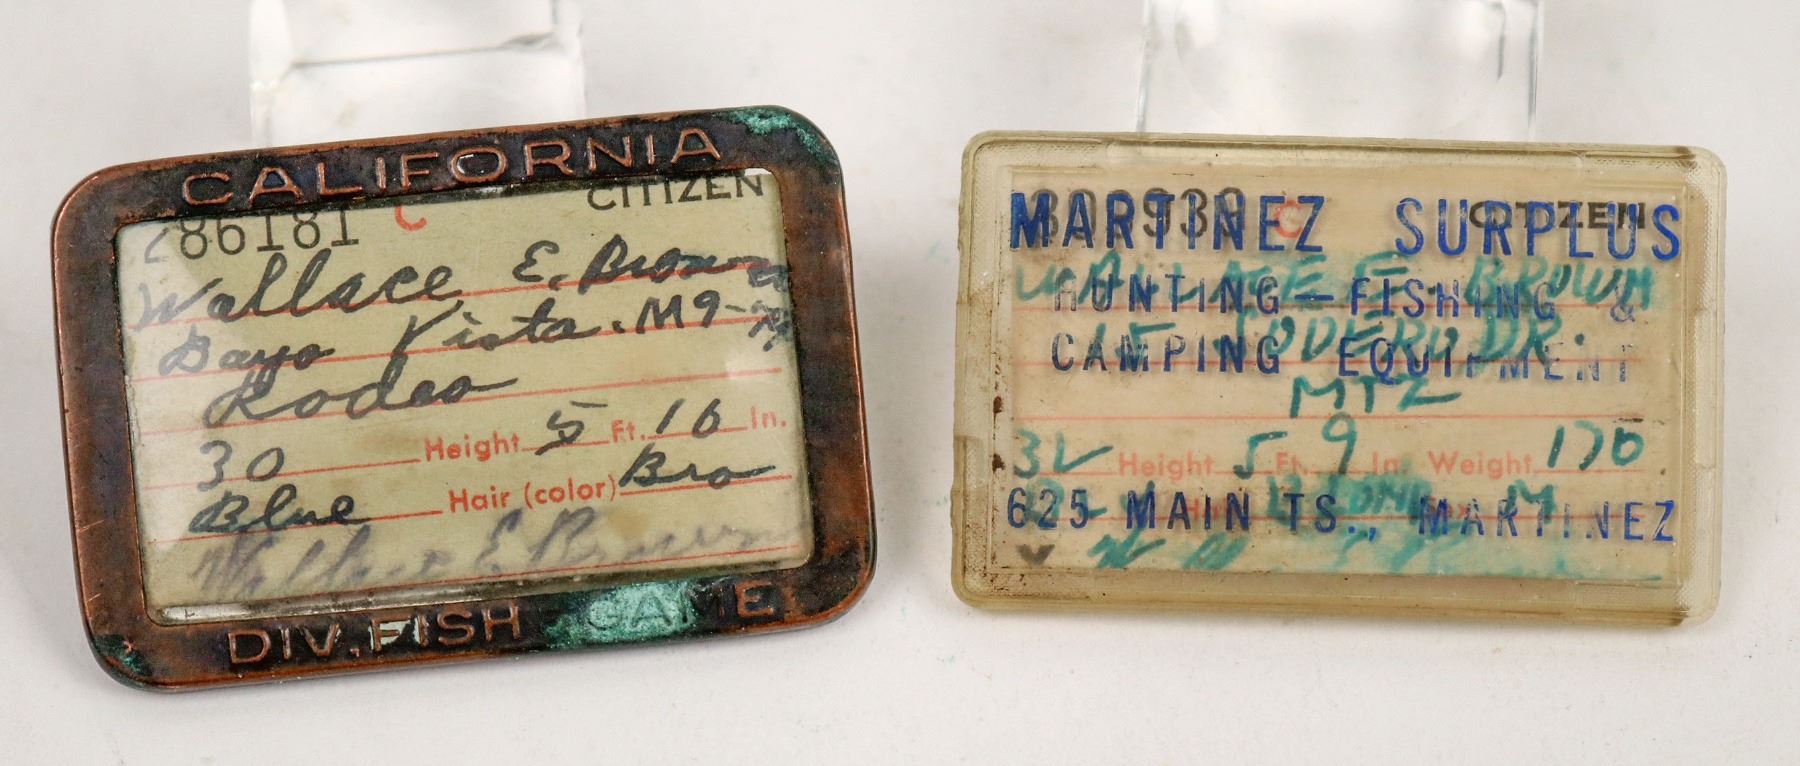 CALIFORNIA
286181 C CITIZEN
Wallace E. Brown
Bayo Vista. M9-
Rodeo
30 Height 5 Ft. 10 In.
Blue Hair (color) Bro
Wallace E Brown
DIV. FISH GAME
C CITIZEN
MARTINEZ SURPLUS
WALLACE E. BROWN
HUNTING — FISHING &
DR.
CAMPING EQUIPMENT
MTZ
32 Height 5 Ft. 9 In. Weight 170
625 MAIN TS., MARTINEZ
M